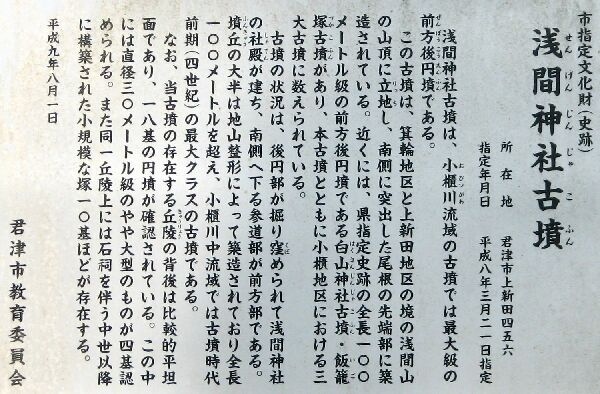 市指定文化財(史跡)
浅間神社古墳
せんげんじんじゃこふん
所在地 君津市上新田四五六
指定年月日 平成八年三月二一日指定
浅間神社古墳は、小櫃川流域の古墳では最大級の
前方後円墳である。
この古墳は、箕輪地区と上新田地区の境の浅間山
の山頂に立地し、南側に突出した尾根の先端部に築
造されている。近くには、県指定史跡の全長一〇〇
メートル級の前方後円墳である白山神社古墳・飯籠
塚古墳があり、本古墳とともに小櫃地区における三
大古墳に数えられている。
古墳の状況は、後円部が掘り窪められて浅間神社
の社殿が建ち、南側へ下る参道部が前方部である。
墳丘の大半は地山整形によって築造されており全長
一〇〇メートルを超え、小櫃川中流域では古墳時代
前期(四世紀)の最大クラスの古墳である。
なお、当古墳の存在する丘陵の背後は比較的平坦
面であり、一八基の円墳が確認されている。この中
には直径三〇メートル級のやや大型のものが四基認
められる。また同一丘陵上には石祠を伴う中世以降
に構築された小規模な塚一〇基ほどが存在する。
平成九年八月一日
君津市教育委員会